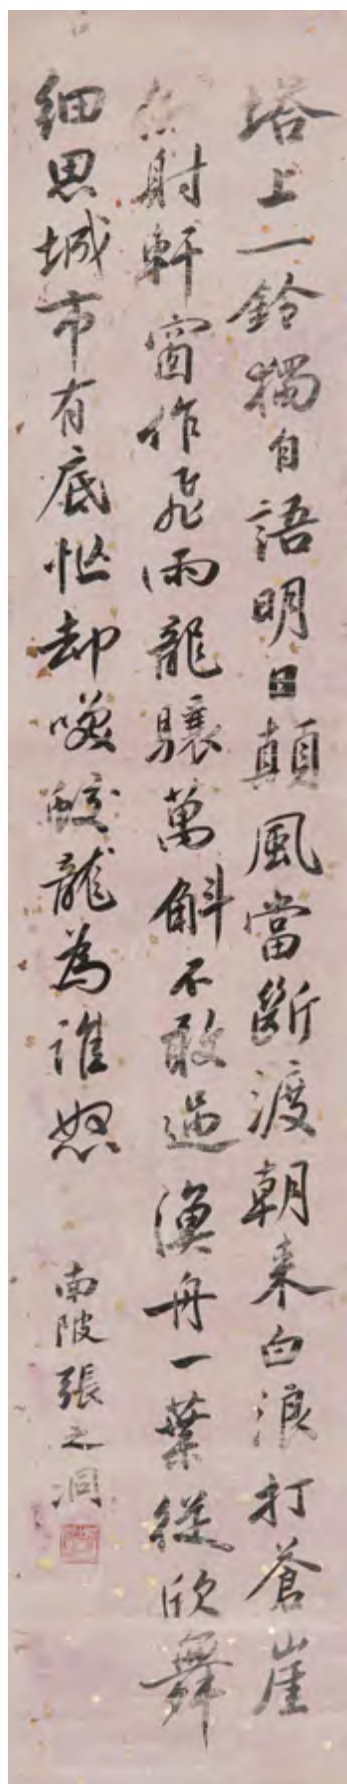 塔上一鈴獨自語明日顛風當斷渡朝来白浪打蒼崖
射軒窗作飛雨龍驤萬斛不敢過漁舟一葉從欣舞
細思城市有底忙却咲蛟龍為誰怒
南陂張之洞